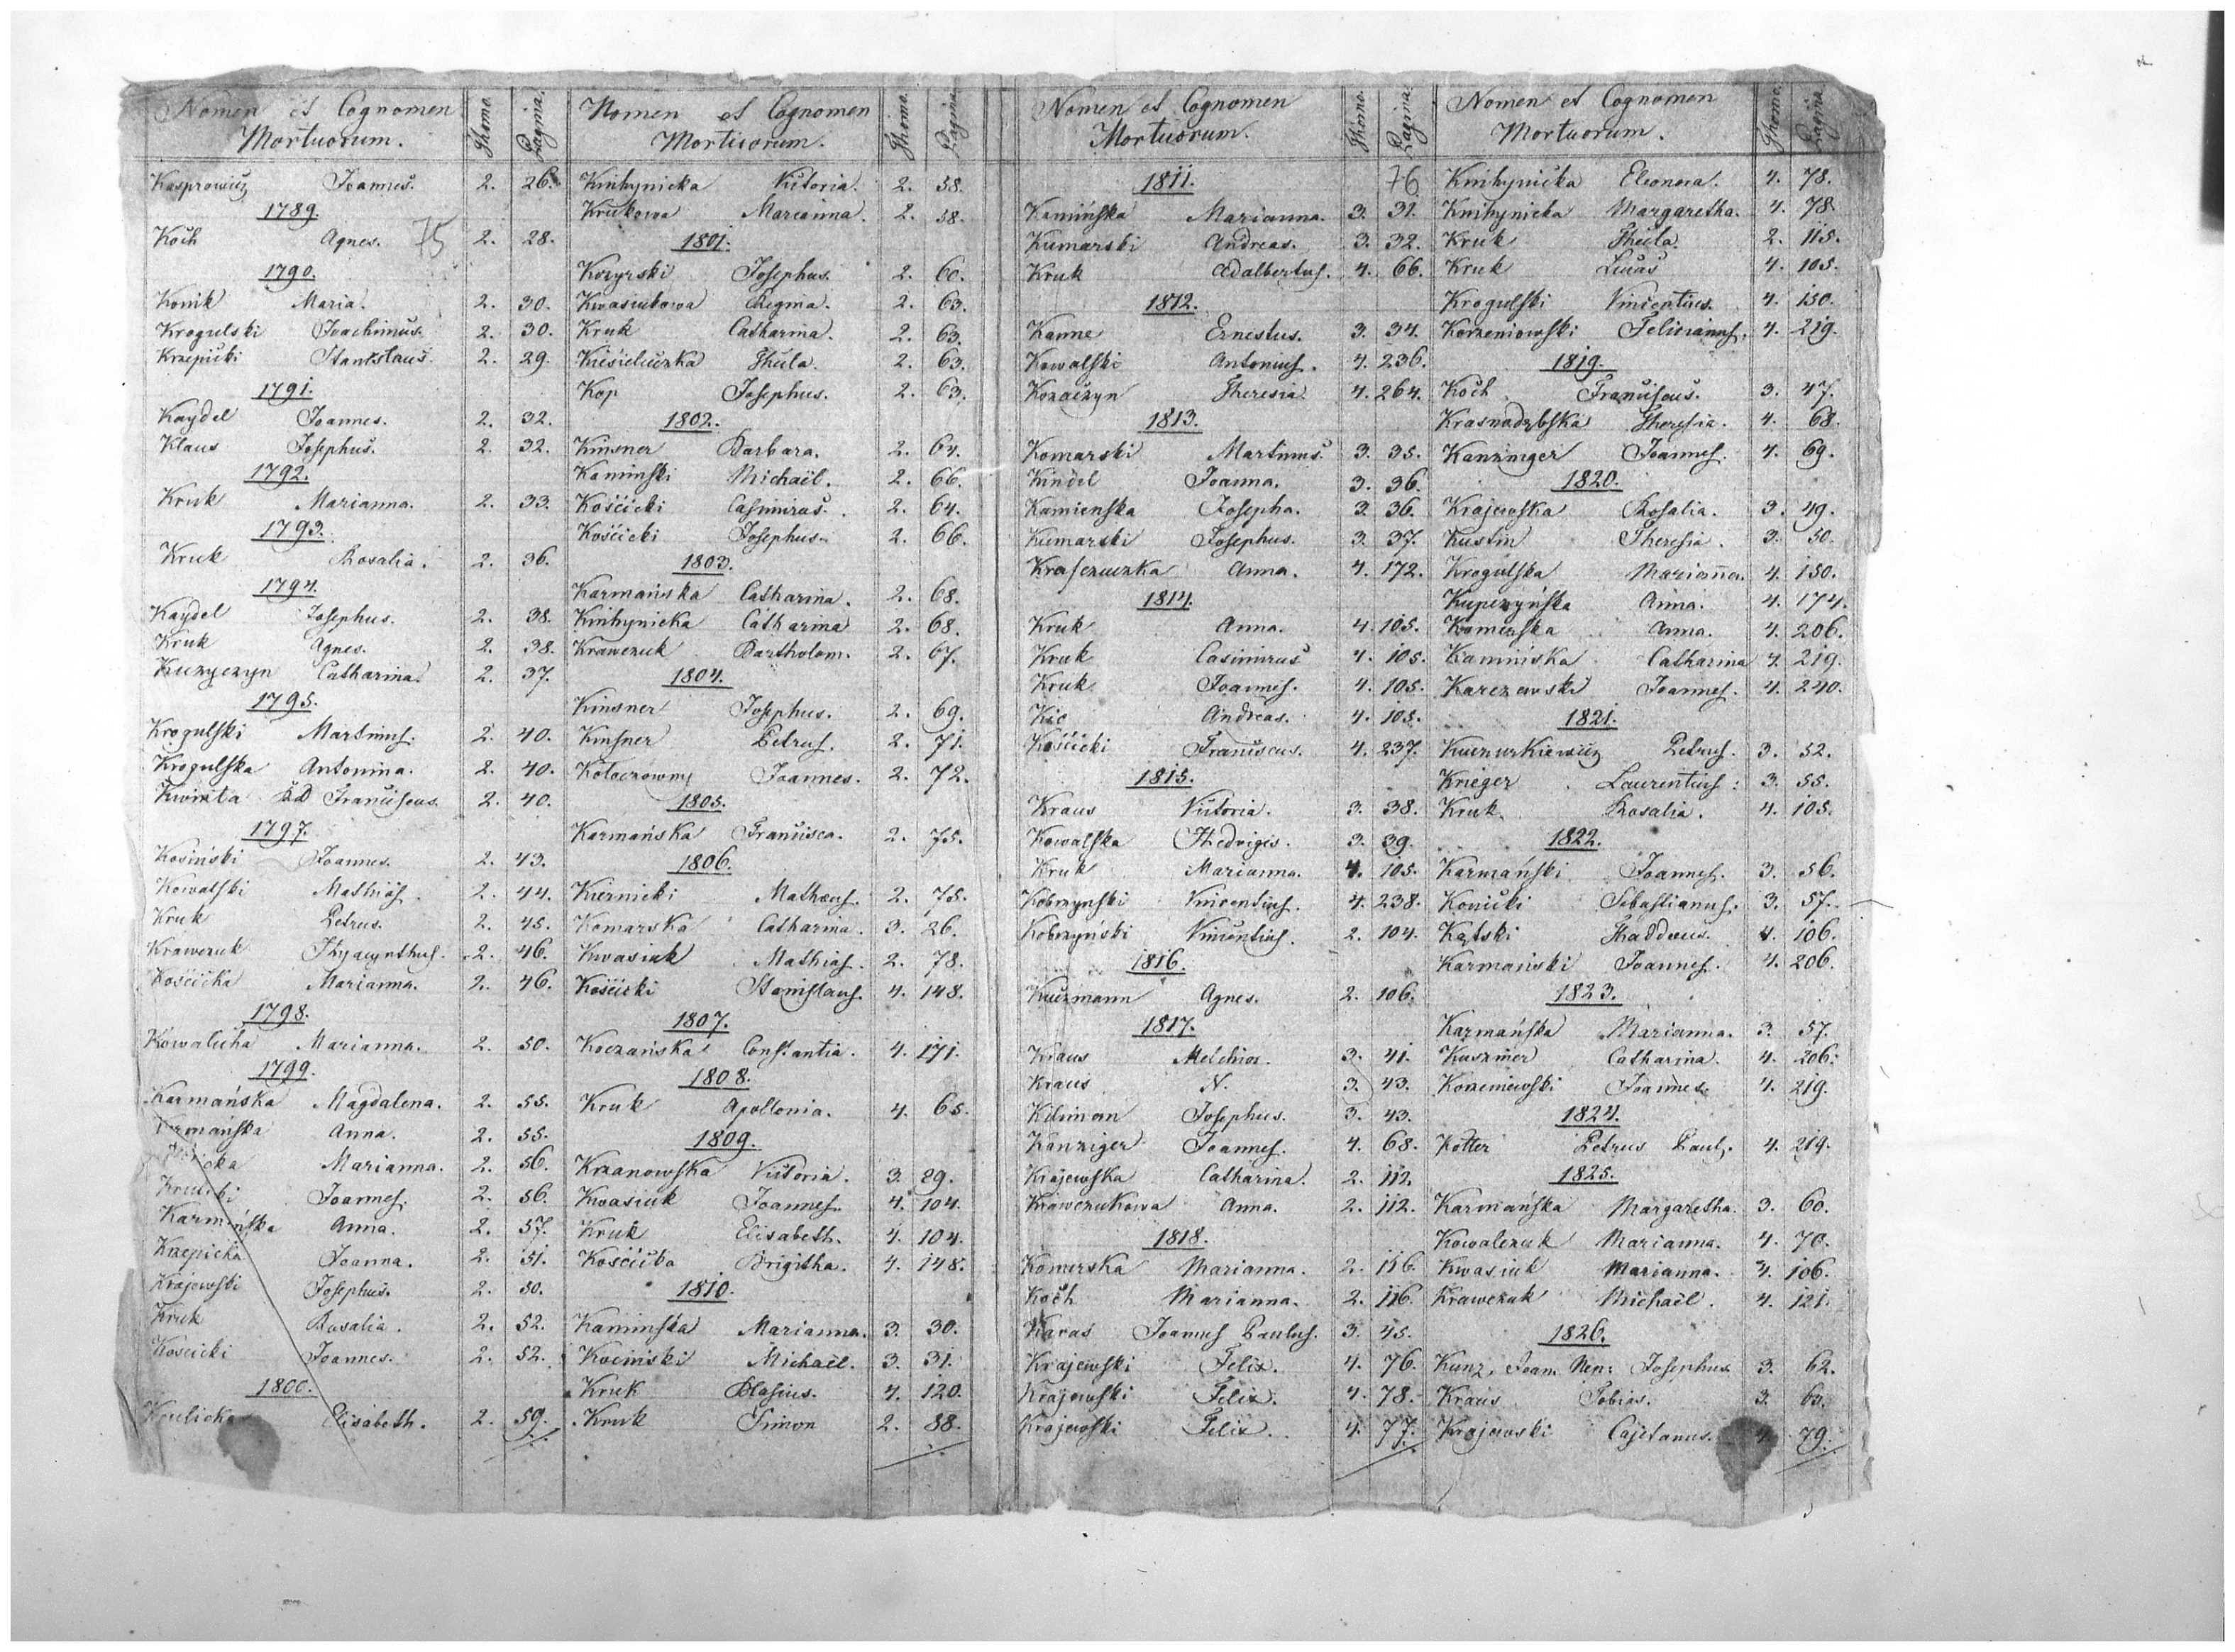 Nomen et Cognomen
Mortuorum.
Thomo.
Pagina.
Kasprowicz Joannes. 2. 26.
1789.
75
Koch Agnes. 2. 28.
1790.
Konik Maria. 2. 30.
Krogulski Joachimus. 2. 30.
Krzepicki Stanislaus. 2. 29.
1791.
Kaydel Joannes. 2. 32.
Klaus Josephus. 2. 32.
1792.
Kruk Marianna. 2. 33.
1793.
Kruk Rosalia. 2. 36.
1794.
Kaydel Josephus. 2. 38.
Kruk Agnes. 2. 38.
Kuzyczyn Catharina. 2. 37.
1795.
Krogulski Martinus. 2. 40.
Krogulska Antonina. 2. 40.
Kwinta Franciscus 2. 40.
1797.
Kosiński Joannes. 2. 43.
Kowalski Mathias. 2. 44.
Kruk Petrus. 2. 45.
Krawczuk Hyacynthus. 2. 46.
Kościcka Marianna. 2. 46.
1798.
Kowalicha Marianna. 2. 50.
1799.
Karmańska Magdalena. 2. 55.
Karmańska Anna. 2. 55.
Marianna. 2. 56.
Joannes. 2. 56.
Karmańska Anna. 2. 57.
Krzepicka Joanna. 2. 51.
Krajewski Josephus. 2. 50.
Kruk Rosalia. 2. 52.
Kościcki Joannes. 2. 52.
1800.
Elisabeth. 2. 59.
Nomen et Cognomen
Mortuorum.
Thomo.
Pagina.
Knihynicka Victoria. 2. 58.
Krukowa Marianna. 2. 58.
1801.
Kozyrski Josephus. 2. 60.
Kwasiukowa Regina. 2. 63.
Kruk Catharina. 2. 63.
Kisieluczka Thecla. 2. 63.
Kop Josephus. 2. 63.
1802.
Kinsner Barbara. 2. 64.
Kaminski Michaël. 2. 66.
Kościcki Casimirus. 2. 64.
Kościcki Josephus. 2. 66.
1803.
Karmańska Catharina. 2. 68.
Knihynicka Catharina 2. 68.
Krawczuk Bartholom. 2. 67.
1804.
Kinsner Josephus. 2. 69.
Kinsner Petrus. 2. 71.
Joannes. 2. 72.
1805.
Karmańska Francisca. 2. 75.
1806.
Kiernicki Mathæus. 2. 75.
Komarska Catharina. 3. 26.
Kwasiuk Mathias. 2. 78.
Kościcki Stanislaus. 4. 148.
1807.
Koczańska Constantia. 4. 171.
1808.
Kruk Apollonia. 4. 65.
1809.
Krzanowska Victoria. 3. 29.
Kwasiuk Joannes. 4. 104.
Kruk Elisabeth. 4. 104.
Kościcka Brigitha. 4. 148.
1810.
Kaminska Marianna. 3. 30.
Kociński Michaël. 3. 31.
Kruk Blasius. 4. 120.
Kruk Simon 2. 88.
Nomen et Cognomen
Mortuorum.
Thomo.
Pagina
1811. 76
Kamińska Marianna. 3. 31.
Kumarski Andreas. 3. 32.
Kruk Adalbertus. 4. 66.
1812.
Kanne Ernestus. 3. 34.
Kowalski Antonius. 4. 236.
Kozaczyn Theresia 4. 264.
1813.
Komarski Martinus. 3. 35.
Kindel Joanna. 3. 36.
Kamienska Josepha. 3. 36.
Kumarski Josephus. 3. 37.
Anna. 4. 172.
1814.
Kruk Anna. 4. 105.
Kruk Casimirus 4. 105.
Kruk Joannes. 4. 105.
Kic Andreas. 4. 105.
Kościcki Franciscus. 4. 237.
1815.
Kraus Victoria. 3. 38.
Kowalska Hedvigis. 3. 39.
Kruk Marianna. 4. 105.
Kobrzynski Vincentius. 4. 238.
Kobrzyński Vincentius. 2. 104.
1816.
Kuczmann Agnes. 2. 106.
1817.
Kraus Melchior. 3. 41.
Kraus N. 3. 43.
Kiliman Josephus. 3. 43.
Kanziger Joannes. 4. 68.
Krajewska Catharina. 2. 112.
Krawczukowa Anna. 2. 112.
1818.
Komerska Marianna. 2. 116.
Koch Marianna. 2. 116.
Karas Joannes Paulus. 3. 45.
Krajewski Felix. 4. 76.
Krajewski Felix. 4. 78.
Krajewski Felix. 4. 77.
Nomen et Cognomen
Mortuorum.
Thomo.
Pagina
Knihynicka Eleonora. 4. 78.
Knihynicka Margaretha. 4. 78.
Kruk Thecla. 2. 115.
Kruk Lucas 4. 105.
Krogulski Vincentius. 4. 150.
Korzeniowski Felicianus. 4. 219.
1819.
Koch Franciscus. 3. 47.
Theresia. 4. 68.
Kanzinger Joannes. 4. 69.
1820.
Krajewska Rosalia. 3. 49.
Kustin Theresia. 3. 50.
Krogulska Marianna. 4. 150.
Kupczyńska Anna. 4. 174.
Komerska Anna. 4. 206.
Kaminiska Catharina 4. 219.
Karczewski Joannes. 4. 240.
1821.
Kuczurkiewicz Petrus. 3. 52.
Krieger Laurentius: 3. 55.
Kruk Rosalia. 4. 105.
1822.
Karmański Joannes. 3. 56.
Konicki Sebastianus. 3. 57.
Kątski Thaddæus. 4. 106.
Karmański Joannes. 4. 206.
1823.
Karmańska Marianna. 3. 57.
Kuszmer Catharina. 4. 206.
Korzeniewski Joannes. 4. 219.
1824.
Kotter Petrus Paul. 4. 219.
1825.
Karmańska Margaretha. 3. 60.
Kowalczuk Marianna. 4. 70.
Kwasiuk Marianna. 4. 106.
Krawczuk Michaël. 4. 121.
1826.
Kunz, Joan. Nep: Josephus 3. 62.
Kraus Tobias. 3. 63.
Krajewski Cajetanus. 79.